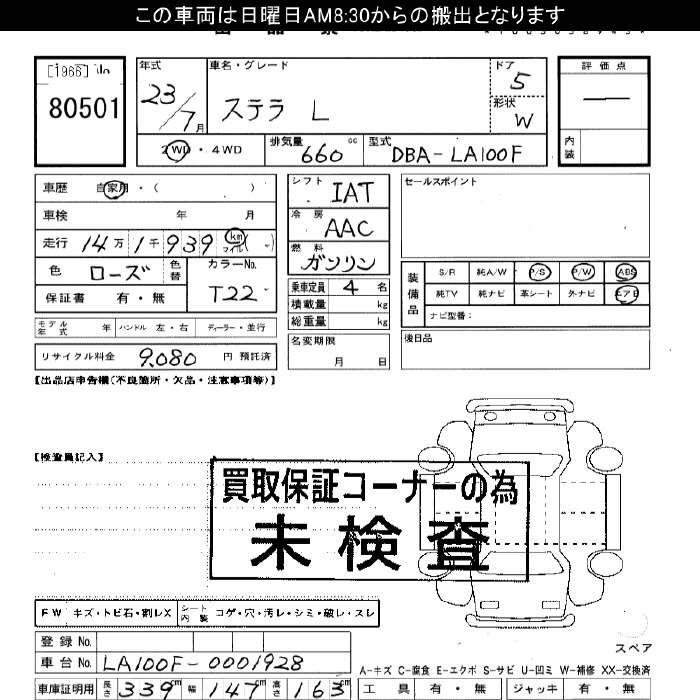 この車両は日曜日AM8:30からの搬出となります
[1966] No
80501
年式
23/7月
車名・グレード
ステラ L
ドア
5
形状
W
評価点
—
内装
2WD・4WD
排気量
660 cc
型式
DBA-LA100F
車歴 自家用・( )
車検 年 月
走行 14万1千939 km マイル( )
色 ローズ
色替
カラーNo.
T22
保証書 有・無
シフト
IAT
冷房
AAC
燃料
ガソリン
乗車定員 4 名
積載量 kg
総重量 kg
名変期限
月 日
セールスポイント
装備品
S/R 純A/W P/S P/W ABS
純TV 純ナビ 革シート 外ナビ エアB
ナビ型番:
後日品
モデル年式 年 ハンドル 左・右 ディーラー・並行
リサイクル料金 9,080 円 預託済
【出品店申告欄(不良箇所・欠品・注意事項等)】
【検査員記入】
買取保証コーナーの為
未検査
FW キズ・トビ石・割レX
シート内装 コゲ・穴・汚レ・シミ・破レ・スレ
登録 No.
車台 No. LA100F-0001928
車庫証明用 長さ 339cm 幅 147cm 高さ 163cm
スペア
A-キズ C-腐食 E-エクボ S-サビ U-凹ミ W-補修 XX-交換済
工具 有・無 ジャッキ 有・無